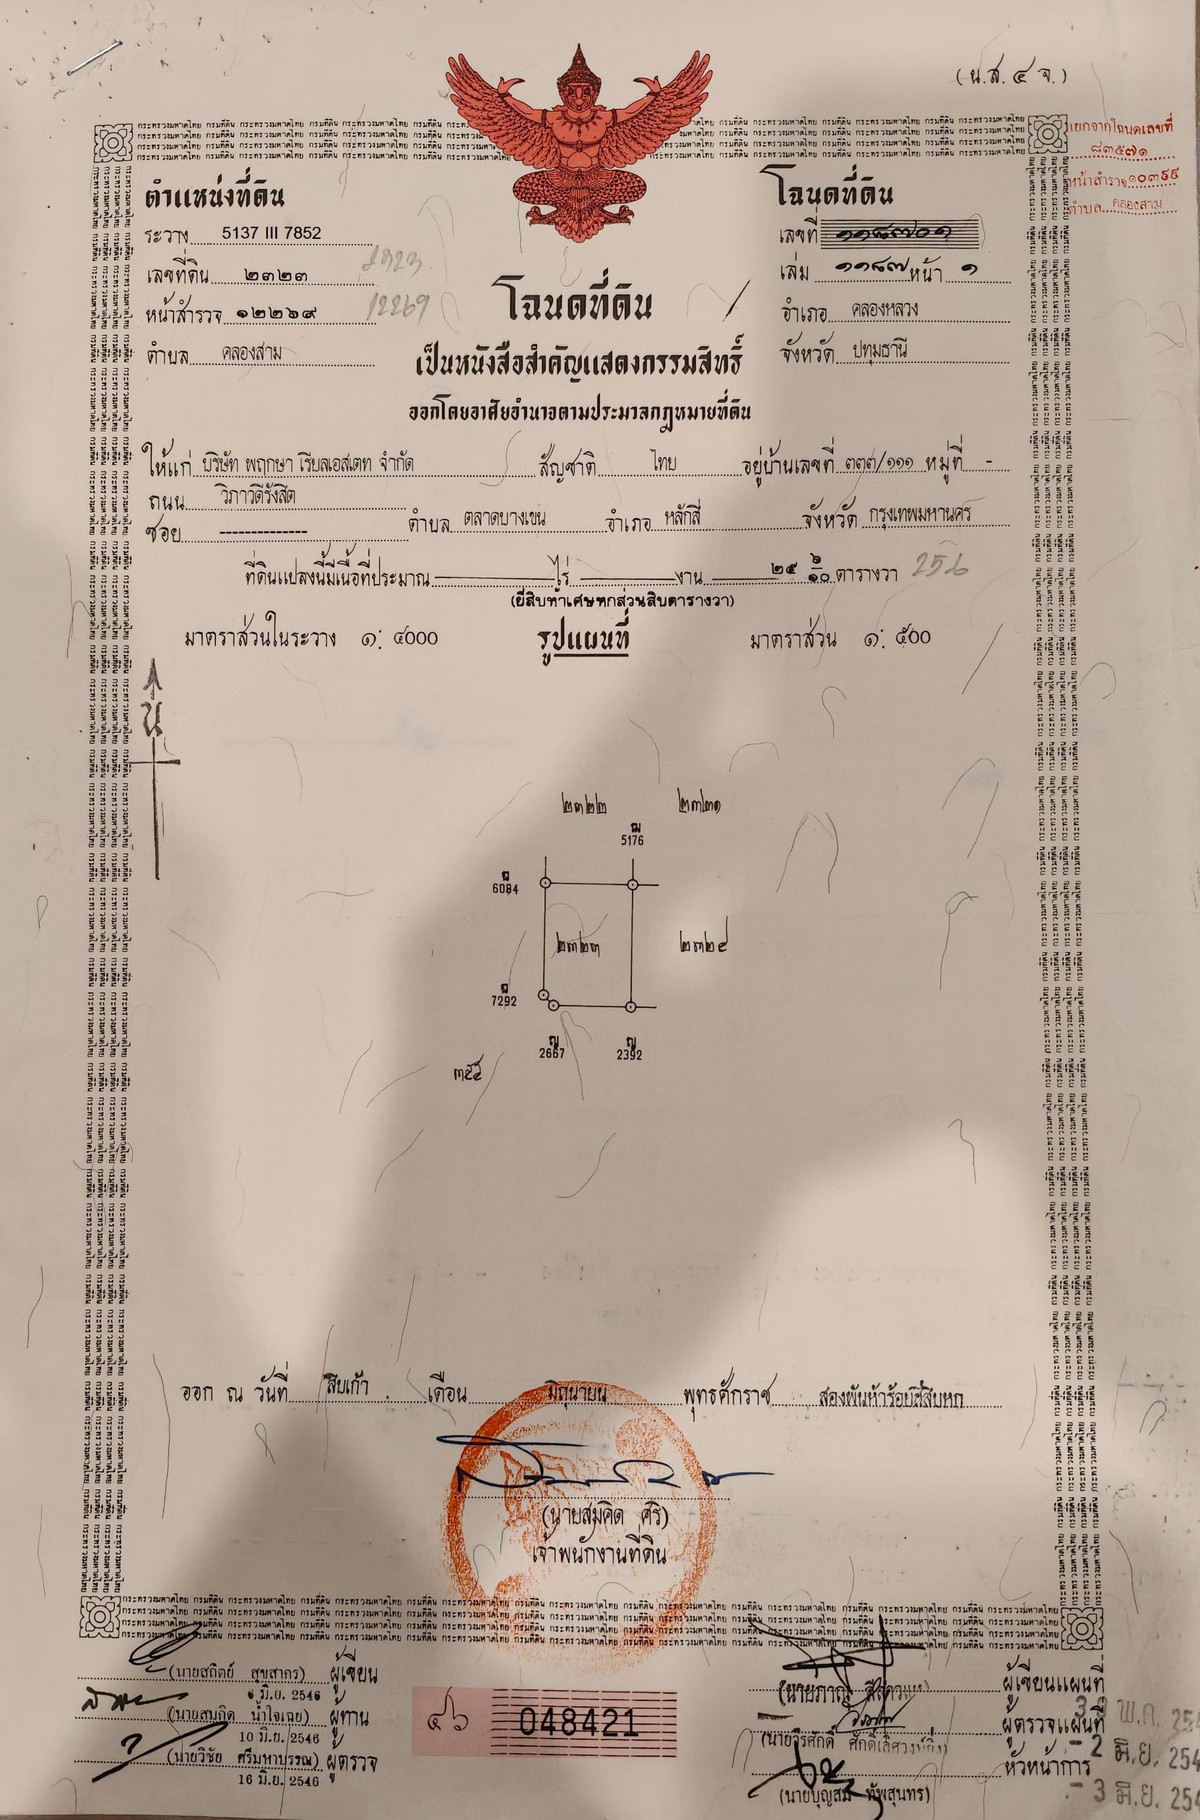 (น.ส. ๔ จ.)
แยกจากโฉนดเลขที่
๘๓๕๗๑
หน้าสำรวจ ๑๐๓๙๙
ตำบล คลองสาม
ตำแหน่งที่ดิน
ระวาง 5137 III 7852
เลขที่ดิน ๒๓๒๓ 2323
หน้าสำรวจ ๑๒๒๖๙ 12269
ตำบล คลองสาม
โฉนดที่ดิน
เลขที่ ๑๑๘๗๐๑
เล่ม ๑๑๘๗ หน้า ๑
อำเภอ คลองหลวง
จังหวัด ปทุมธานี
โฉนดที่ดิน
เป็นหนังสือสำคัญแสดงกรรมสิทธิ์
ออกโดยอาศัยอำนาจตามประมวลกฎหมายที่ดิน
ให้แก่ บริษัท พฤกษา เรียลเอสเตท จำกัด สัญชาติ ไทย อยู่บ้านเลขที่ ๓๓๓/๑๑๑ หมู่ที่ -
ถนน วิภาวดีรังสิต
ซอย ------------- ตำบล ตลาดบางเขน อำเภอ หลักสี่ จังหวัด กรุงเทพมหานคร
ที่ดินแปลงนี้มีเนื้อที่ประมาณ ไร่ งาน ๒๕ ๖/๑๐ ตารางวา 256
(ยี่สิบห้าเศษหกส่วนสิบตารางวา)
มาตราส่วนในระวาง ๑: ๔๐๐๐ รูปแผนที่ มาตราส่วน ๑: ๕๐๐
น
๒๓๒๒ ๒๓๒๑
ฌ
5176
ฉ
6084
๒๓๒๓ ๒๓๒๔
ฉ
7292
ญ ญ
2667 2392
๓๕๕
ออก ณ วันที่ สิบเก้า เดือน มิถุนายน พุทธศักราช สองพันห้าร้อยสี่สิบหก
(นายสมคิด ศรี)
เจ้าพนักงานที่ดิน
(นายสถิตย์ สุขสากร) ผู้เขียน
6 มิ.ย. 2546
(นายสมกิต น้ำใจเฉย) ผู้ทาน
10 มิ.ย. 2546
(นายวิชัย ศรีมหาบรรณ) ผู้ตรวจ
16 มิ.ย. 2546
๔๖ 048421
ผู้เขียนแผนที่
พ.ค.
ผู้ตรวจแผนที่
(นายจิรศักดิ์ ศักดิ์เลิศวงษ์ยิ่ง)
- 2 มิ.ย. 254
หัวหน้าการ
- 3 มิ.ย. 254
(นายบุญสม ทัพสุนทร)